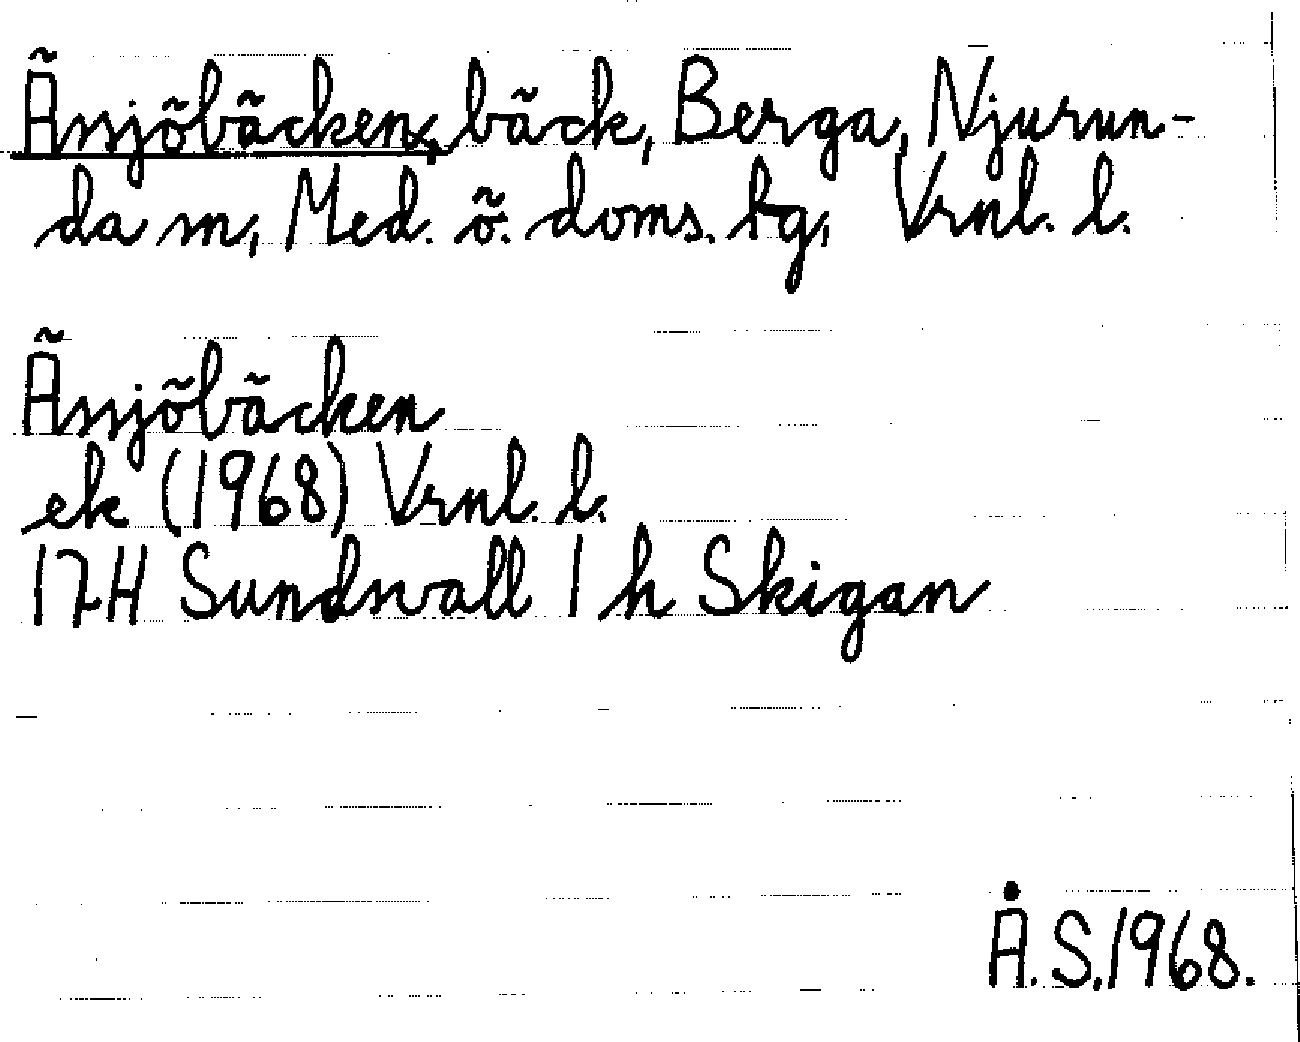 Ässjöbäcken, bäck, Berga, Njurun-
da sn, Med. ö. doms. hg, Vrnl. l.
Ässjöbäcken
ek (1968) Vrnl. l.
17H Sundsvall 1 h Skigan
Å.S. 1968.